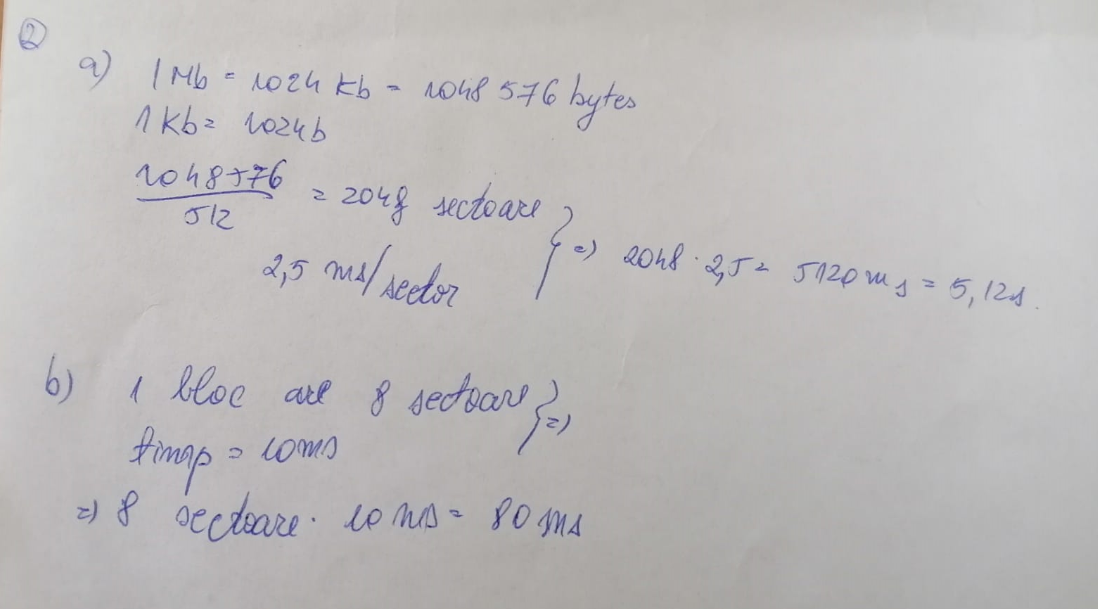 2
a) 1 Mb = 1024 Kb = 1048 576 bytes
1 Kb = 1024b
1048576
512
= 2048 sectoare
2,5 ms/sector
} => 2048 · 2,5 = 5120 ms = 5,12s.
b) 1 bloc are 8 sectoare
timp = 10ms
} =>
=> 8 sectoare · 10 ms = 80 ms